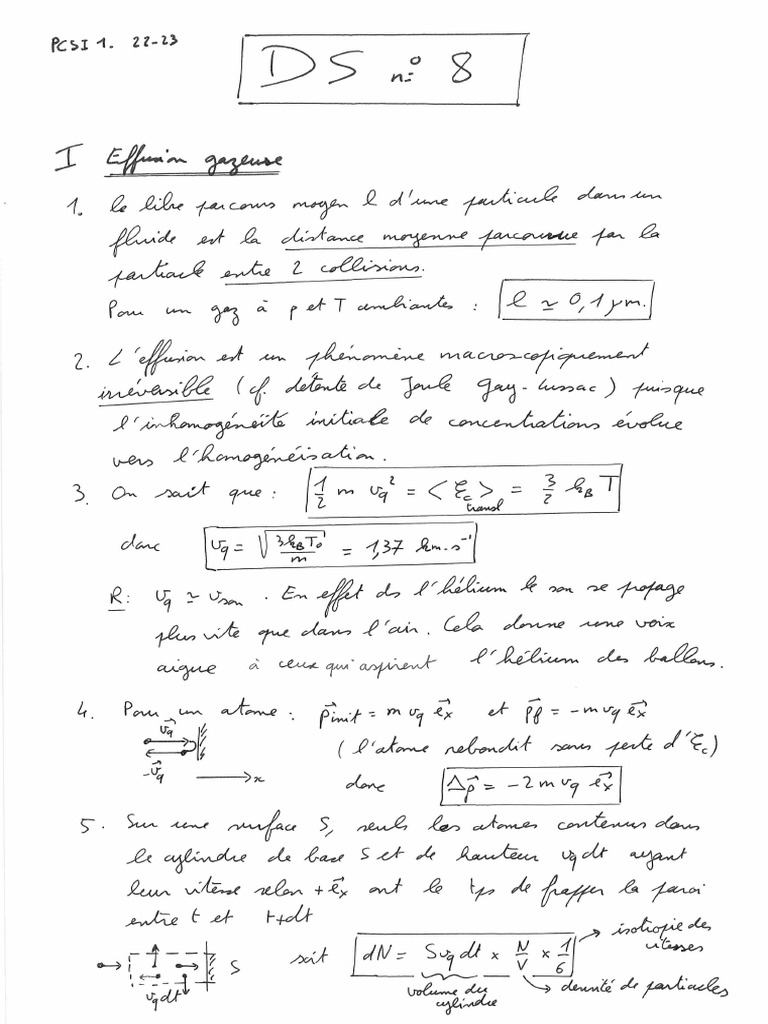 PCSI 1. 22-23
DS n° 8
I Effusion gazeuse
1. le libre parcours moyen l d'une particule dans un
fluide est la distance moyenne parcourue par la
particule entre 2 collisions.
Pour un gaz à p et T ambiantes : l ≃ 0,1 μm.
2. L'effusion est un phénomène macroscopiquement
irréversible (cf. détente de Joule Gay-Lussac) puisque
l'inhomogénéité initiale de concentrations évolue
vers l'homogénéisation.
3. On sait que : 1/2 m vq² = <Ec>transl = 3/2 kB T
donc vq = √(3kBT0/m) = 1,37 km.s⁻¹
R : vq ≃ vson. En effet ds l'hélium le son se propage
plus vite que dans l'air. Cela donne une voix
aigue à ceux qui aspirent l'hélium des ballons.
4. Pour un atome : p⃗init = m vq e⃗x et p⃗f = -m vq e⃗x
v⃗q
(l'atome rebondit sans perte d'Ec)
-v⃗q x
donc Δp⃗ = -2 m vq e⃗x
5. Sur une surface S, seuls les atomes contenus dans
le cylindre de base S et de hauteur vqdt ayant
leur vitesse selon +e⃗x ont le tps de frapper la paroi
entre t et t+dt
isotropie des
vitesses
S soit dN = Svqdt × N/V × 1/6
vqdt
volume du
cylindre
densité de particules